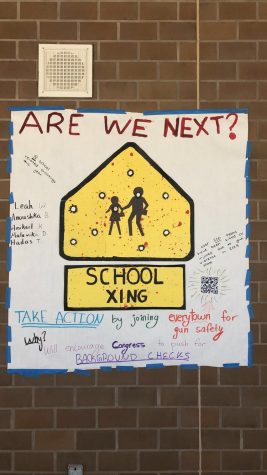 ARE WE NEXT?
Leah W
Anoushka B
Hadas T.
SCHOOL
XING
TAKE ACTION by joining everytown for
gun safety
Why?
Will encourage Congress to push for
BACKGROUND CHECKS